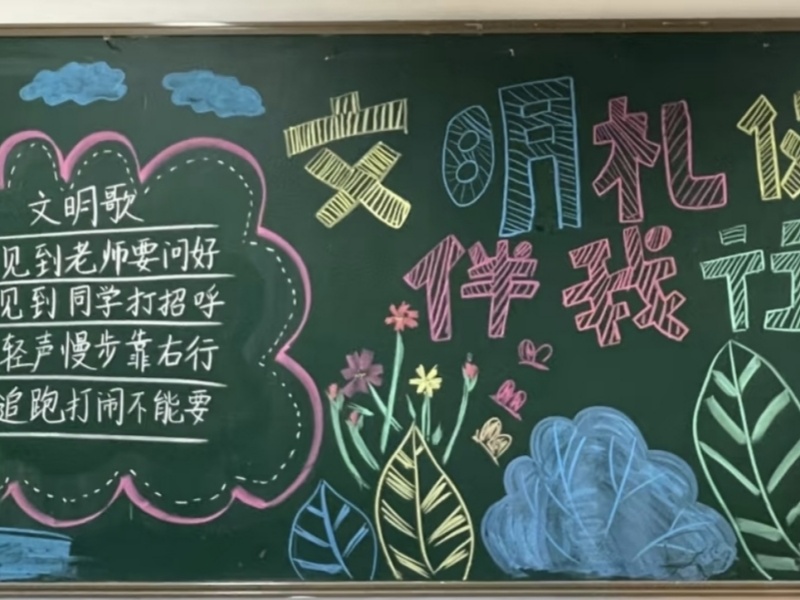 文明歌
见到老师要问好
见到同学打招呼
轻声慢步靠右行
追跑打闹不能要
文明礼
伴我